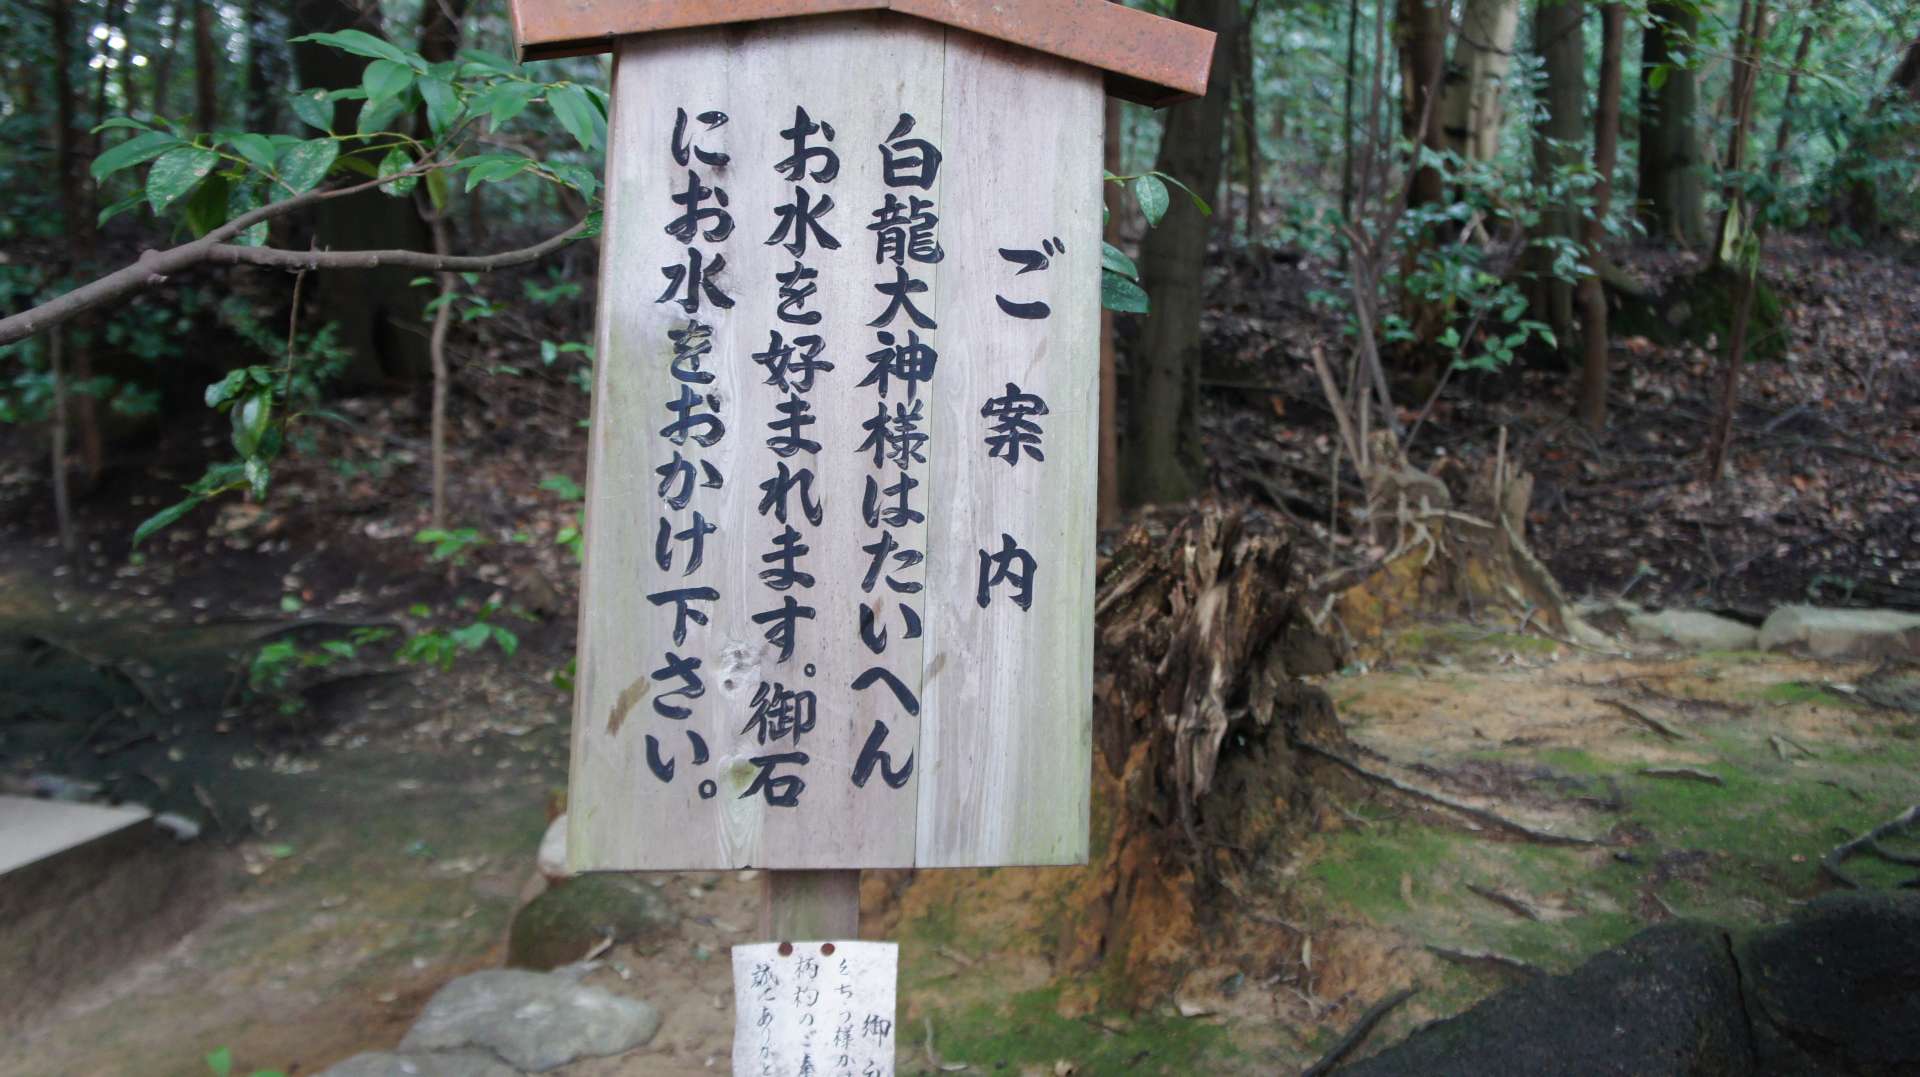 ご案内
白龍大神様はたいへん
お水を好まれます。御石
にお水をおかけ下さい。
御
どちらの様か
柄杓のご奉
誠にありがと